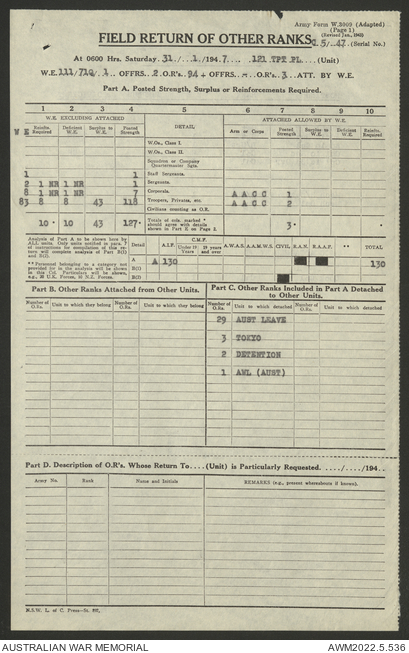 Army Form W.3009 (Adapted)
(Page 1)
(Revised Jan., 1945)
FIELD RETURN OF OTHER RANKS
C.5/.47 (Serial No.)
At 0600 Hrs. Saturday 31/ 1/194 7. 121 TPT PL (Unit)
W.E. 111/710/ 1 OFFRS. 2 O.R's. 94 + OFFRS. - O.R's. 3 ATT. BY W.E.
Part A. Posted Strength, Surplus or Reinforcements Required.
1 2 3 4 5 6 7 8 9 10
W.E. EXCLUDING ATTACHED DETAIL ATTACHED ALLOWED BY W.E.
W E Reinfts. Required Deficient W.E. Surplus to W.E. Posted Strength Arm or Corps Posted Strength Deficient W.E. Surplus to W.E. Reinfts. Required
W.Os., Class I.
W.Os., Class II.
Squadron or Company Quartermaster Sgts.
1 1 Staff Sergeants.
2 1 NR 1 NR 1 Sergeants.
8 1 NR 1 NR 7 Corporals. A A C C 1
83 8 8 43 118 Troopers, Privates, etc. A A C C 2
Civilians counting as O.R.
10 * 10 * 43 127 * Totals of cols. marked * should agree with details shown in Part E. on Page 2. 3 *
Analysis of Part A to be shown here by ALL units. Only units notified in para. 7 of instructions for compilation of this return will complete analysis of Part B(1) and B(2).
** Personnel belonging to a category not provided for in the analysis will be shown in this Col. Particulars will be shown, e.g., 28 U.K. Forces, 10 N.Z. Forces.
Detail A.I.F. C.M.F. Under 19 Years 19 years and over A.W.A.S. A.A.M.W.S. CIVIL R.A.N. R.A.A.F. ** TOTAL
A A 130 130
B(1)
B(2)
Part B. Other Ranks Attached from Other Units.
Part C. Other Ranks Included in Part A Detached to Other Units.
Number of O.Rs. Unit to which they belong Number of O.Rs. Unit to which they belong Number of O.Rs. Unit to which detached Number of O.Rs. Unit to which detached
29 AUST LEAVE
3 TOKYO
2 DETENTION
1 AWL (AUST)
Part D. Description of O.R's. Whose Return To....(Unit) is Particularly Requested...../...../194..
Army No. Rank Name and Initials REMARKS (e.g., present whereabouts if known).
N.S.W. L. of C. Press—St. 897.
AUSTRALIAN WAR MEMORIAL
AWM2022.5.536